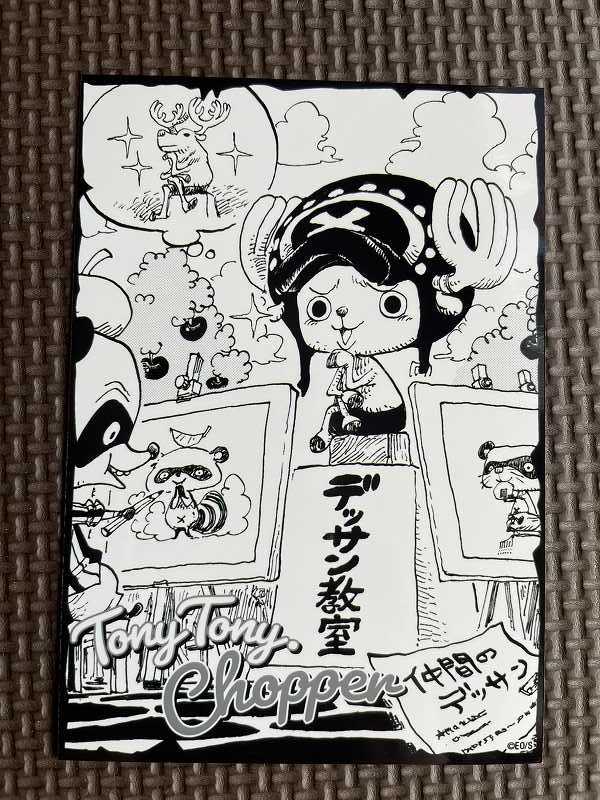 デッサン教室
Tony Tony.
Chopper
仲間の
デッサン
©EO/S